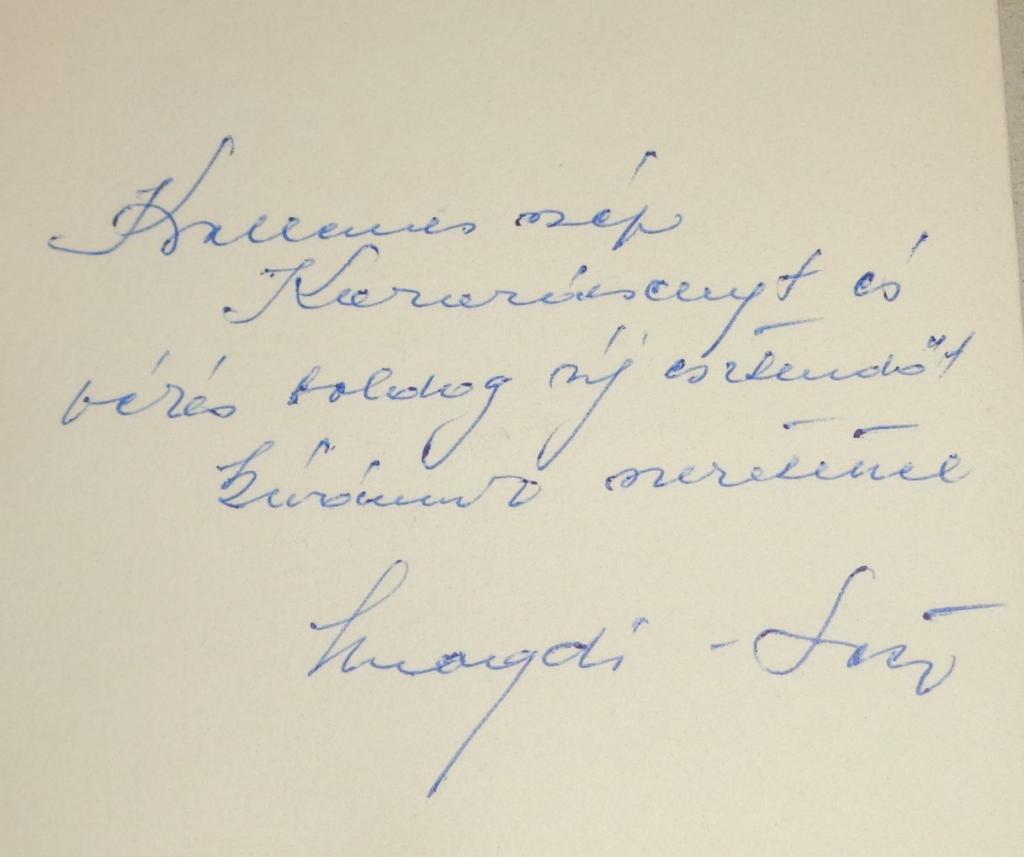 Kellemes szép
Karácsonyt és
békés boldog új esztendőt
kívánunk szeretettel
Magdi -